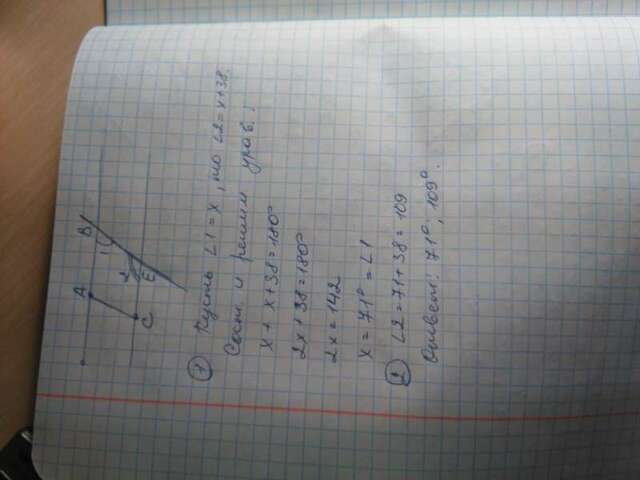 A B
1
2
C E
① Пусть ∠1 = x, то ∠2 = x+38.
Сост. и решим урав.:
x + x + 38 = 180°
2x + 38 = 180°
2x = 142
x = 71° = ∠1
② ∠2 = 71 + 38 = 109
Ответ: 71°, 109°.